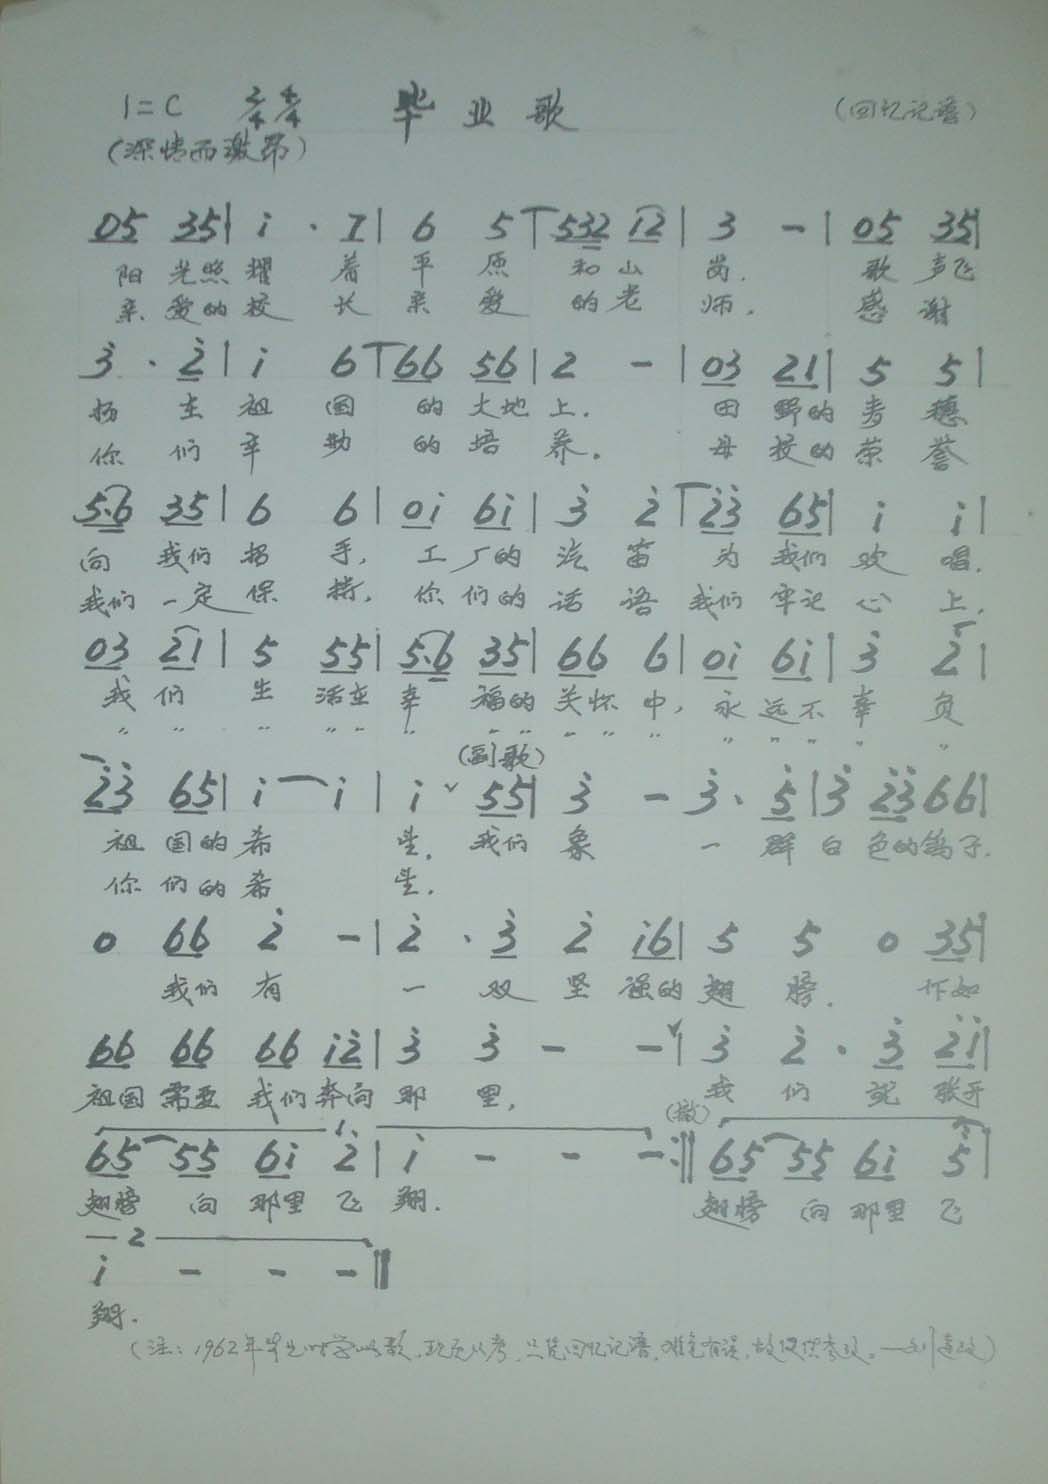 1=C 2/4 4/4 毕业歌 (回忆记谱)
(深情而激昂)
05 35| i · 7| 6 5 | 532 i2 | 3 - | 05 35|
阳光照耀着平原和山岗. 歌声飞
亲爱的校长亲爱的老师. 感谢
3 · 2 | i 6 | 66 56 | 2 - | 03 21 | 5 5 |
扬在祖国的大地上. 田野的麦穗
你们辛勤的培养. 母校的荣誉
5·6 35 | 6 6 | 0i 6i | 3 2 | 23 65 | i i |
向我们招手, 工厂的汽笛为我们欢唱.
我们一定保持, 你们的话语我们牢记心上.
03 21 | 5 55 | 5·6 35 | 66 6 | 0i 6i | 3 2 |
我们生活在幸福的关怀中, 永远不辜负
〃 〃 〃 〃 〃 〃 〃 〃 〃 〃 〃 〃 〃 〃 〃 〃
(副歌)
23 65 | i i | i ˇ 55 | 3 - 3 · 5 | 3 23 66 |
祖国的希望. 我们象一群白色的鸽子.
你们的希望.
0 66 2 - | 2 · 3 2 i6 | 5 5 0 35 |
我们有一双坚强的翅膀. 怀如
66 66 66 i2 | 3 3 - - ˇ | 3 2 · 3 2i |
祖国需要我们奔向那里, 我们就张开
1. (撤)
65 55 6i 2 | i - - - :|| 65 55 6i 5 |
翅膀向那里飞翔. 翅膀向那里飞
2
i - - - ||
翔.
(注: 1962年毕业时学此歌, 现无从考, 只凭回忆记谱, 难免有误, 故仅供参考. —刘